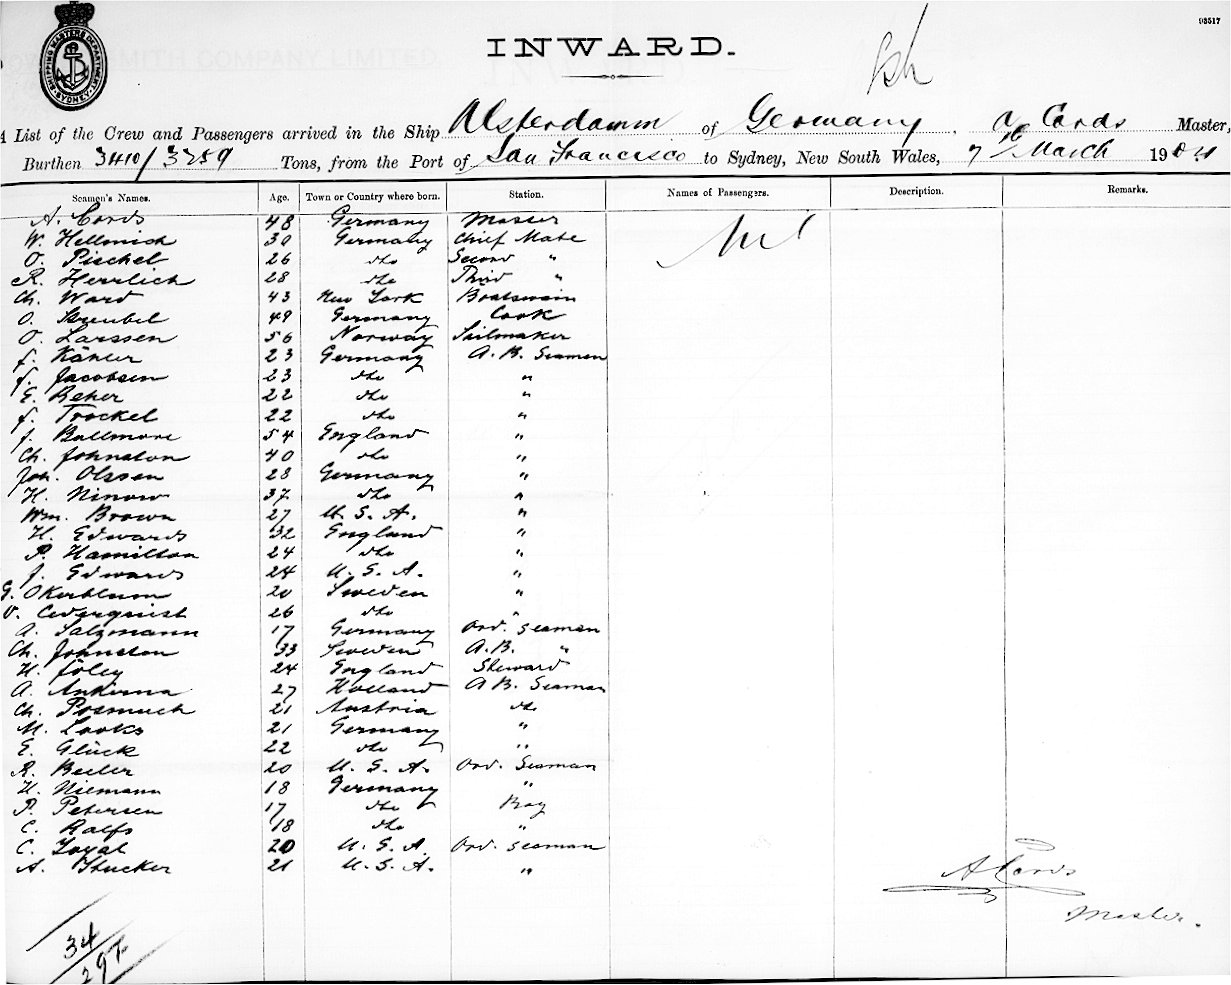 98517
SHIPPING MASTERS DEPARTMENT SYDNEY
INWARD.
A List of the Crew and Passengers arrived in the Ship Alsterdamm of Germany, A. Cords Master,
Burthen 3410/3259 Tons, from the Port of San Francisco to Sydney, New South Wales, 7th March 1904
Seamen's Names. Age. Town or Country where born. Station. Names of Passengers. Description. Remarks.
A. Cords 48 Germany Master Nil
W. Hellmich 30 Germany Chief Mate
O. Pischel 26 dto Second "
R. Herrlich 28 dto Third "
Ch. Ward 43 New York Boatswain
O. Streubel 49 Germany Cook
O. Larssen 56 Norway Sailmaker
f. Kähler 23 Germany A. B. Seamen
f. Jacobsen 23 dto "
E. Reher 22 dto "
f. Trockel 22 dto "
J. Bullmore 54 England "
Ch. Johnston 40 dto "
Joh. Olssen 28 Germany "
H. Ninow 37 dto "
Wm. Brown 27 U. S. A. "
H. Edwards 32 England "
P. Hamilton 24 dto "
J. Edwards 24 U. S. A. "
G. Okerbluom 20 Sweden "
V. Cederquist 26 dto "
A. Salzmann 17 Germany Ord. Seaman
Ch. Johnston 33 Sweden A.B. "
H. Foley 24 England Steward
A. Ankirma 27 Holland A B. Seaman
Ch. Posmuck 21 Austria dto
M. Looks 21 Germany "
E. Glück 22 dto "
R. Beiler 20 U. S. A. Ord. Seaman
H. Niemann 18 Germany "
P. Petersen 17 dto Boy
C. Ralfs 18 dto "
C. Loyal 20 U. S. A. Ord. Seaman
A. Stucker 21 U. S. A. "
A Cords
Master.
34
297